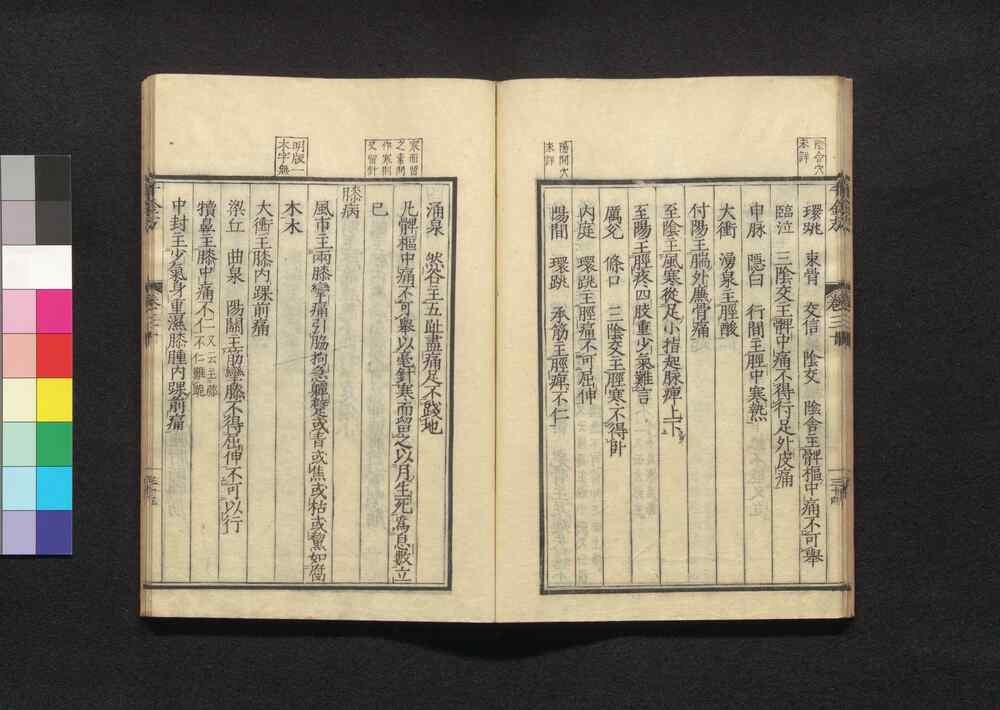 環跳 束骨 交信 陰交 陰舍主髀樞中痛不可舉
臨泣 三陰交主髀中痛不得行足外皮痛
申脉 隱白 行間主脛中寒熱
大衝 湧泉主脛酸
付陽主腨外廉骨痛
至陰主風寒從足小指起脉痺上下
至陽主脛疼四肢重少氣難言
厲兌 條口 三陰交主脛寒不得卧
内庭 環跳主脛痛不可屈伸
陽間 環跳 承筋主脛痺不仁
陰舍穴
未詳
陽間穴
未詳
卷三十
涌泉 然谷主五趾盡痛足不踐地
凡髀樞中痛不可舉以毫針寒而留之以月生死爲息數立
已
膝病
風市主兩膝攣痛引脇拘急躄或青或焦或枯或黧如腐
木木
大衝主膝内踝前痛
梁丘 曲泉 陽關主筋攣膝不得屈伸不可以行
犢鼻主膝中痛不仁又云主膝不仁難跪
中封主少氣身重濕膝腫内踝前痛
寒而留
之素問
作寒則
久留針
明版一
木字無
千金方
卷三十